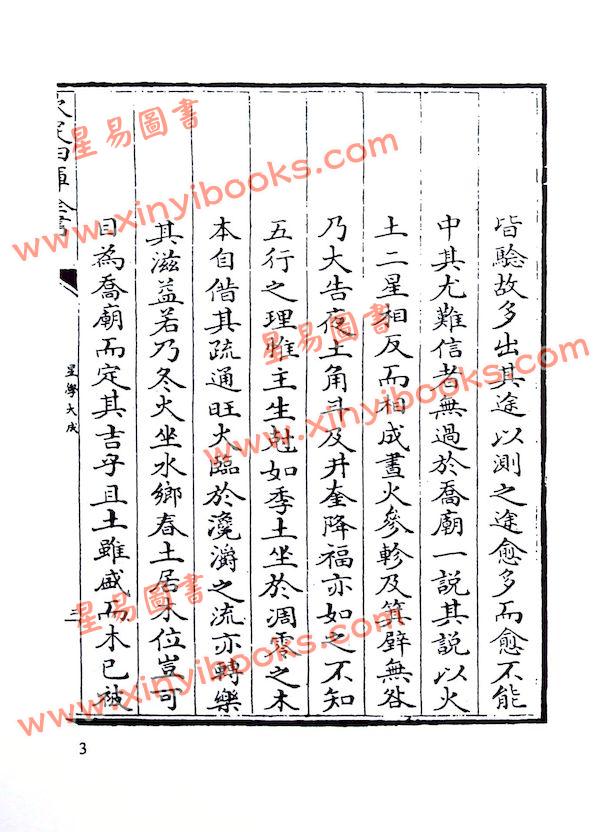 皆驗故多出其途以測之途愈多而愈不能
中其尤難信者無過於喬廟一説其説以火
土二星相反而相成晝火參軫及箕壁無咎
乃大吉夜土角斗及井奎降福亦如之不知
五行之理惟主生尅如季土坐於凋零之木
本自借其疏通旺火臨於瀺灂之流亦轉樂
其滋益若乃冬火坐水鄉春土居木位豈可
目為喬廟而定其吉乎且土雖盛而木已被
欽定四庫全書
星學大成
三
3
星易圖書
www.xinyibooks.com
星易圖書
www.xinyibooks.com
星易圖書
www.xinyibooks.com